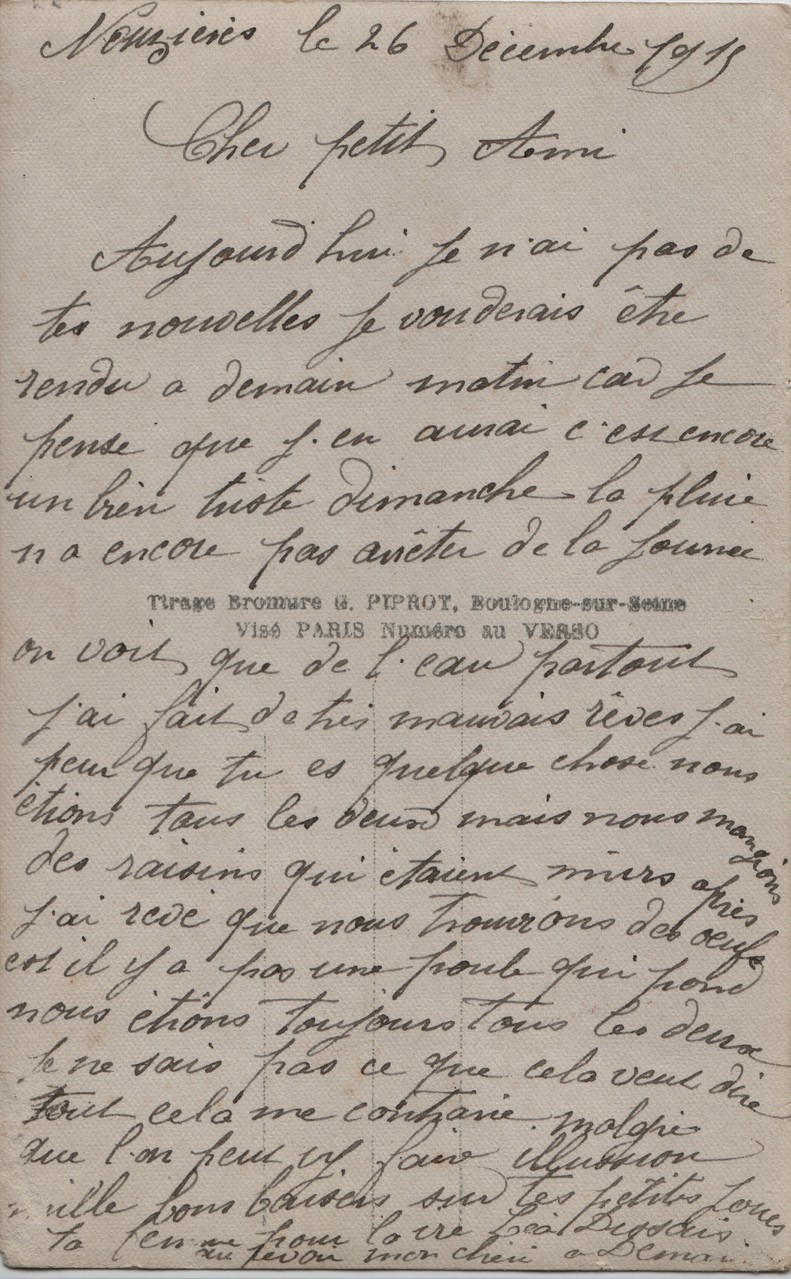 Nouzières le 26 Décembre 1915
Cher petit Ami
Aujourd hui je n'ai pas de
tes nouvelles je vouderais être
rendu a demain matin car je
pense que j'en aurai c'est encore
un bien triste dimanche la pluie
n a encore pas arrêter de la journee
Tirage Bromure G. PIPROT, Boulogne-sur-Seine
Visé PARIS Numéro au VERSO
on voit que de l'eau partout
j'ai fait de très mauvais rêves j'ai
peur que tu es quelque chose nous
étions tous les deux mais nous mangions
des raisins qui étaient mûrs après
j'ai revé que nous trouvions des oeufs
et il y a pas une poule qui pond
nous étions toujours tous les deux
je ne sais pas ce que cela veut dire
tout cela me contrarie malgré
que l'on peut y faire illussion
mille bons baisers sur tes petites joues
ta femme pour la vie Léa Dussais
au revoir mon chéri a Demain